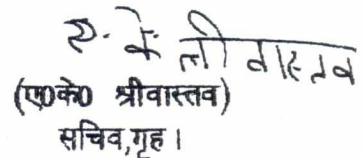 ए. के. श्रीवास्तव
(ए0के0 श्रीवास्तव)
सचिव,गृह।